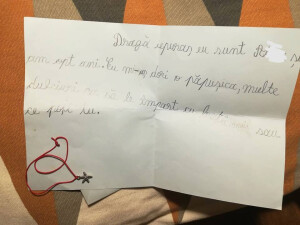 Dragă iepuraș eu sunt
am opt ani. Eu m-aș dori o păpușica, multe
dulciuri să le împart cu
ce pui tu.